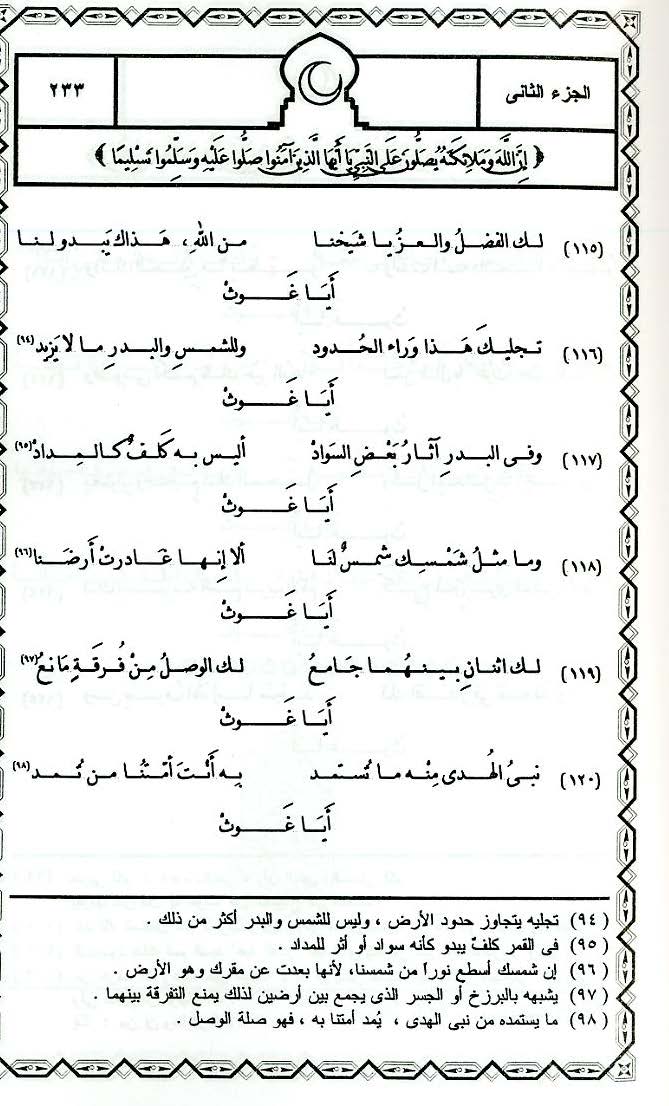 الجزء الثانى
٢٣٣
﴿ إِنَّ اللَّهَ وَمَلَائِكَتَهُ يُصَلُّونَ عَلَى النَّبِيِّ يَا أَيُّهَا الَّذِينَ آمَنُوا صَلُّوا عَلَيْهِ وَسَلِّمُوا تَسْلِيمًا ﴾
(١١٥) لك الفضلُ والعزُّ يا شَيْخنا من اللهِ، هَذاك يَبدو لنا
أَيَا غَوثْ
(١١٦) تجليكَ هَذا وَراء الحُدود وللشمسِ والبدرِ ما لا يَزِيد (٩٤)
أَيَا غَوثْ
(١١٧) وفى البدرِ آثارُ بَعْضِ السوادْ أليس به كَلَفٌ كالمِدادْ (٩٥)
أَيَا غَوثْ
(١١٨) وما مثلُ شَمْسِك شمسٌ لنَا ألا إنها غَادرتْ أَرضَنا (٩٦)
أَيَا غَوثْ
(١١٩) لك اثنانِ بينهُما جَامعُ لك الوصلُ مِنْ فُرقَةٍ مَانعُ (٩٧)
أَيَا غَوثْ
(١٢٠) نبىُ الهُدى مِنْه ما تُستمد به أَنْتَ أمّتنُا من تُمد (٩٨)
أَيَا غَوثْ
(٩٤) تجليه يتجاوز حدود الأرض ، وليس للشمس والبدر أكثر من ذلك .
(٩٥) فى القمر كلفٌ يبدو كأنه سواد أو أثر للمداد .
(٩٦) إن شمسك أسطع نوراً من شمسنا، لأنها بعدت عن مقرك وهو الأرض .
(٩٧) يشبهه بالبرزخ أو الجسر الذى يجمع بين أرضين لذلك يمنع التفرقة بينهما .
(٩٨) ما يستمده من نبى الهدى ، يُمد أمتنا به ، فهو صلة الوصل .